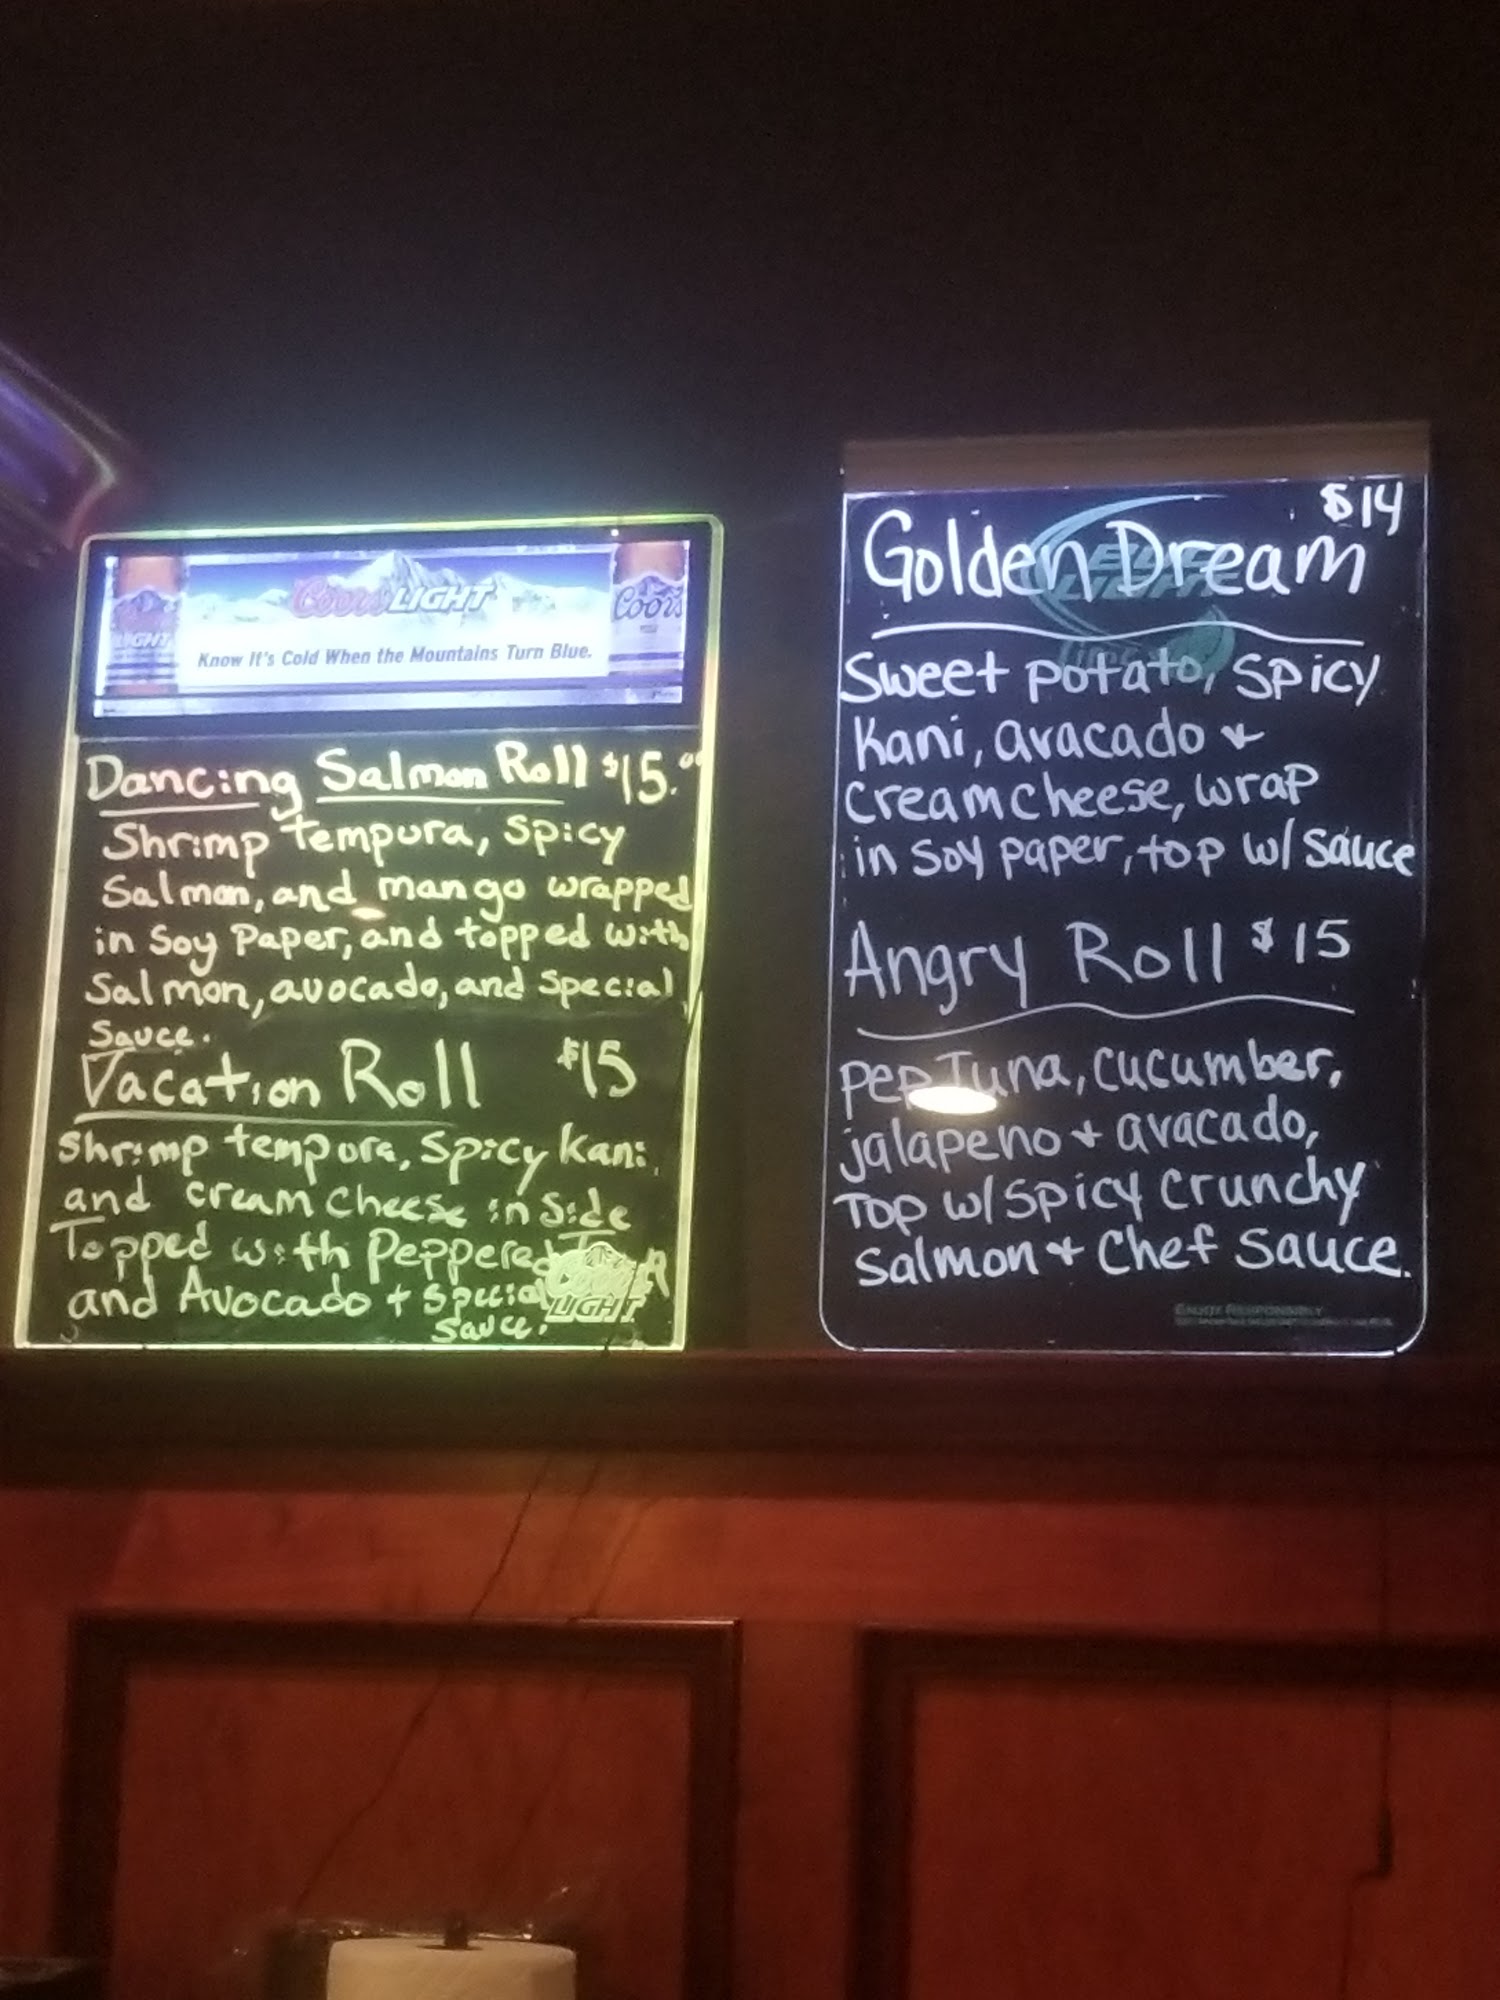 Coors LIGHT
Coors
LIGHT
Know It's Cold When the Mountains Turn Blue.
Dancing Salmon Roll $15.00
Shrimp tempura, spicy
Salmon, and mango wrapped
in Soy Paper, and topped with
Salmon, avocado, and Special
Sauce.
Vacation Roll $15
Shrimp tempura, Spicy Kani,
and cream cheese inside
Topped with Peppered
and Avocado + Special
Sauce.
Coors
LIGHT
$14
Golden Dream
Sweet potato, spicy
Kani, avacado +
cream cheese, wrap
in soy paper, top w/ sauce
Angry Roll $15
Pep Tuna, cucumber,
jalapeno + avacado,
Top w/ spicy crunchy
Salmon + Chef Sauce.
ENJOY RESPONSIBLY